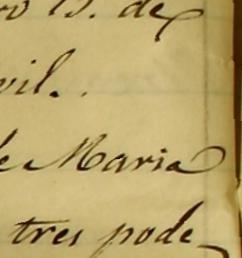 15. de
vil.
de Maria
tres pode